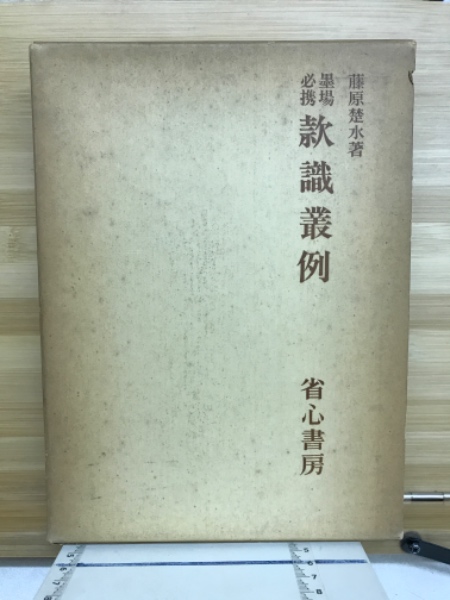 藤原楚水著
墨場
必携
款識叢例
省心書房
5
6
7
8